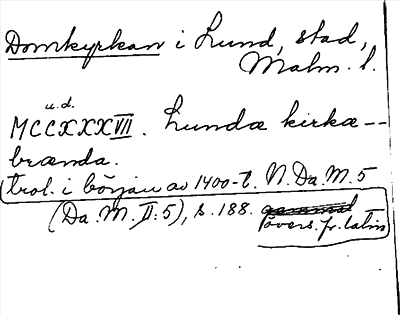 Domkyrkan i Lund, stad,
Malm. l.
u.d.
MCCXXXVII. Lundæ kirkæ --
brænda.
trol. i början av 1400-t. N. Da. M. 5
(Da. M. II: 5), s. 188. gammal
övers. fr. latin